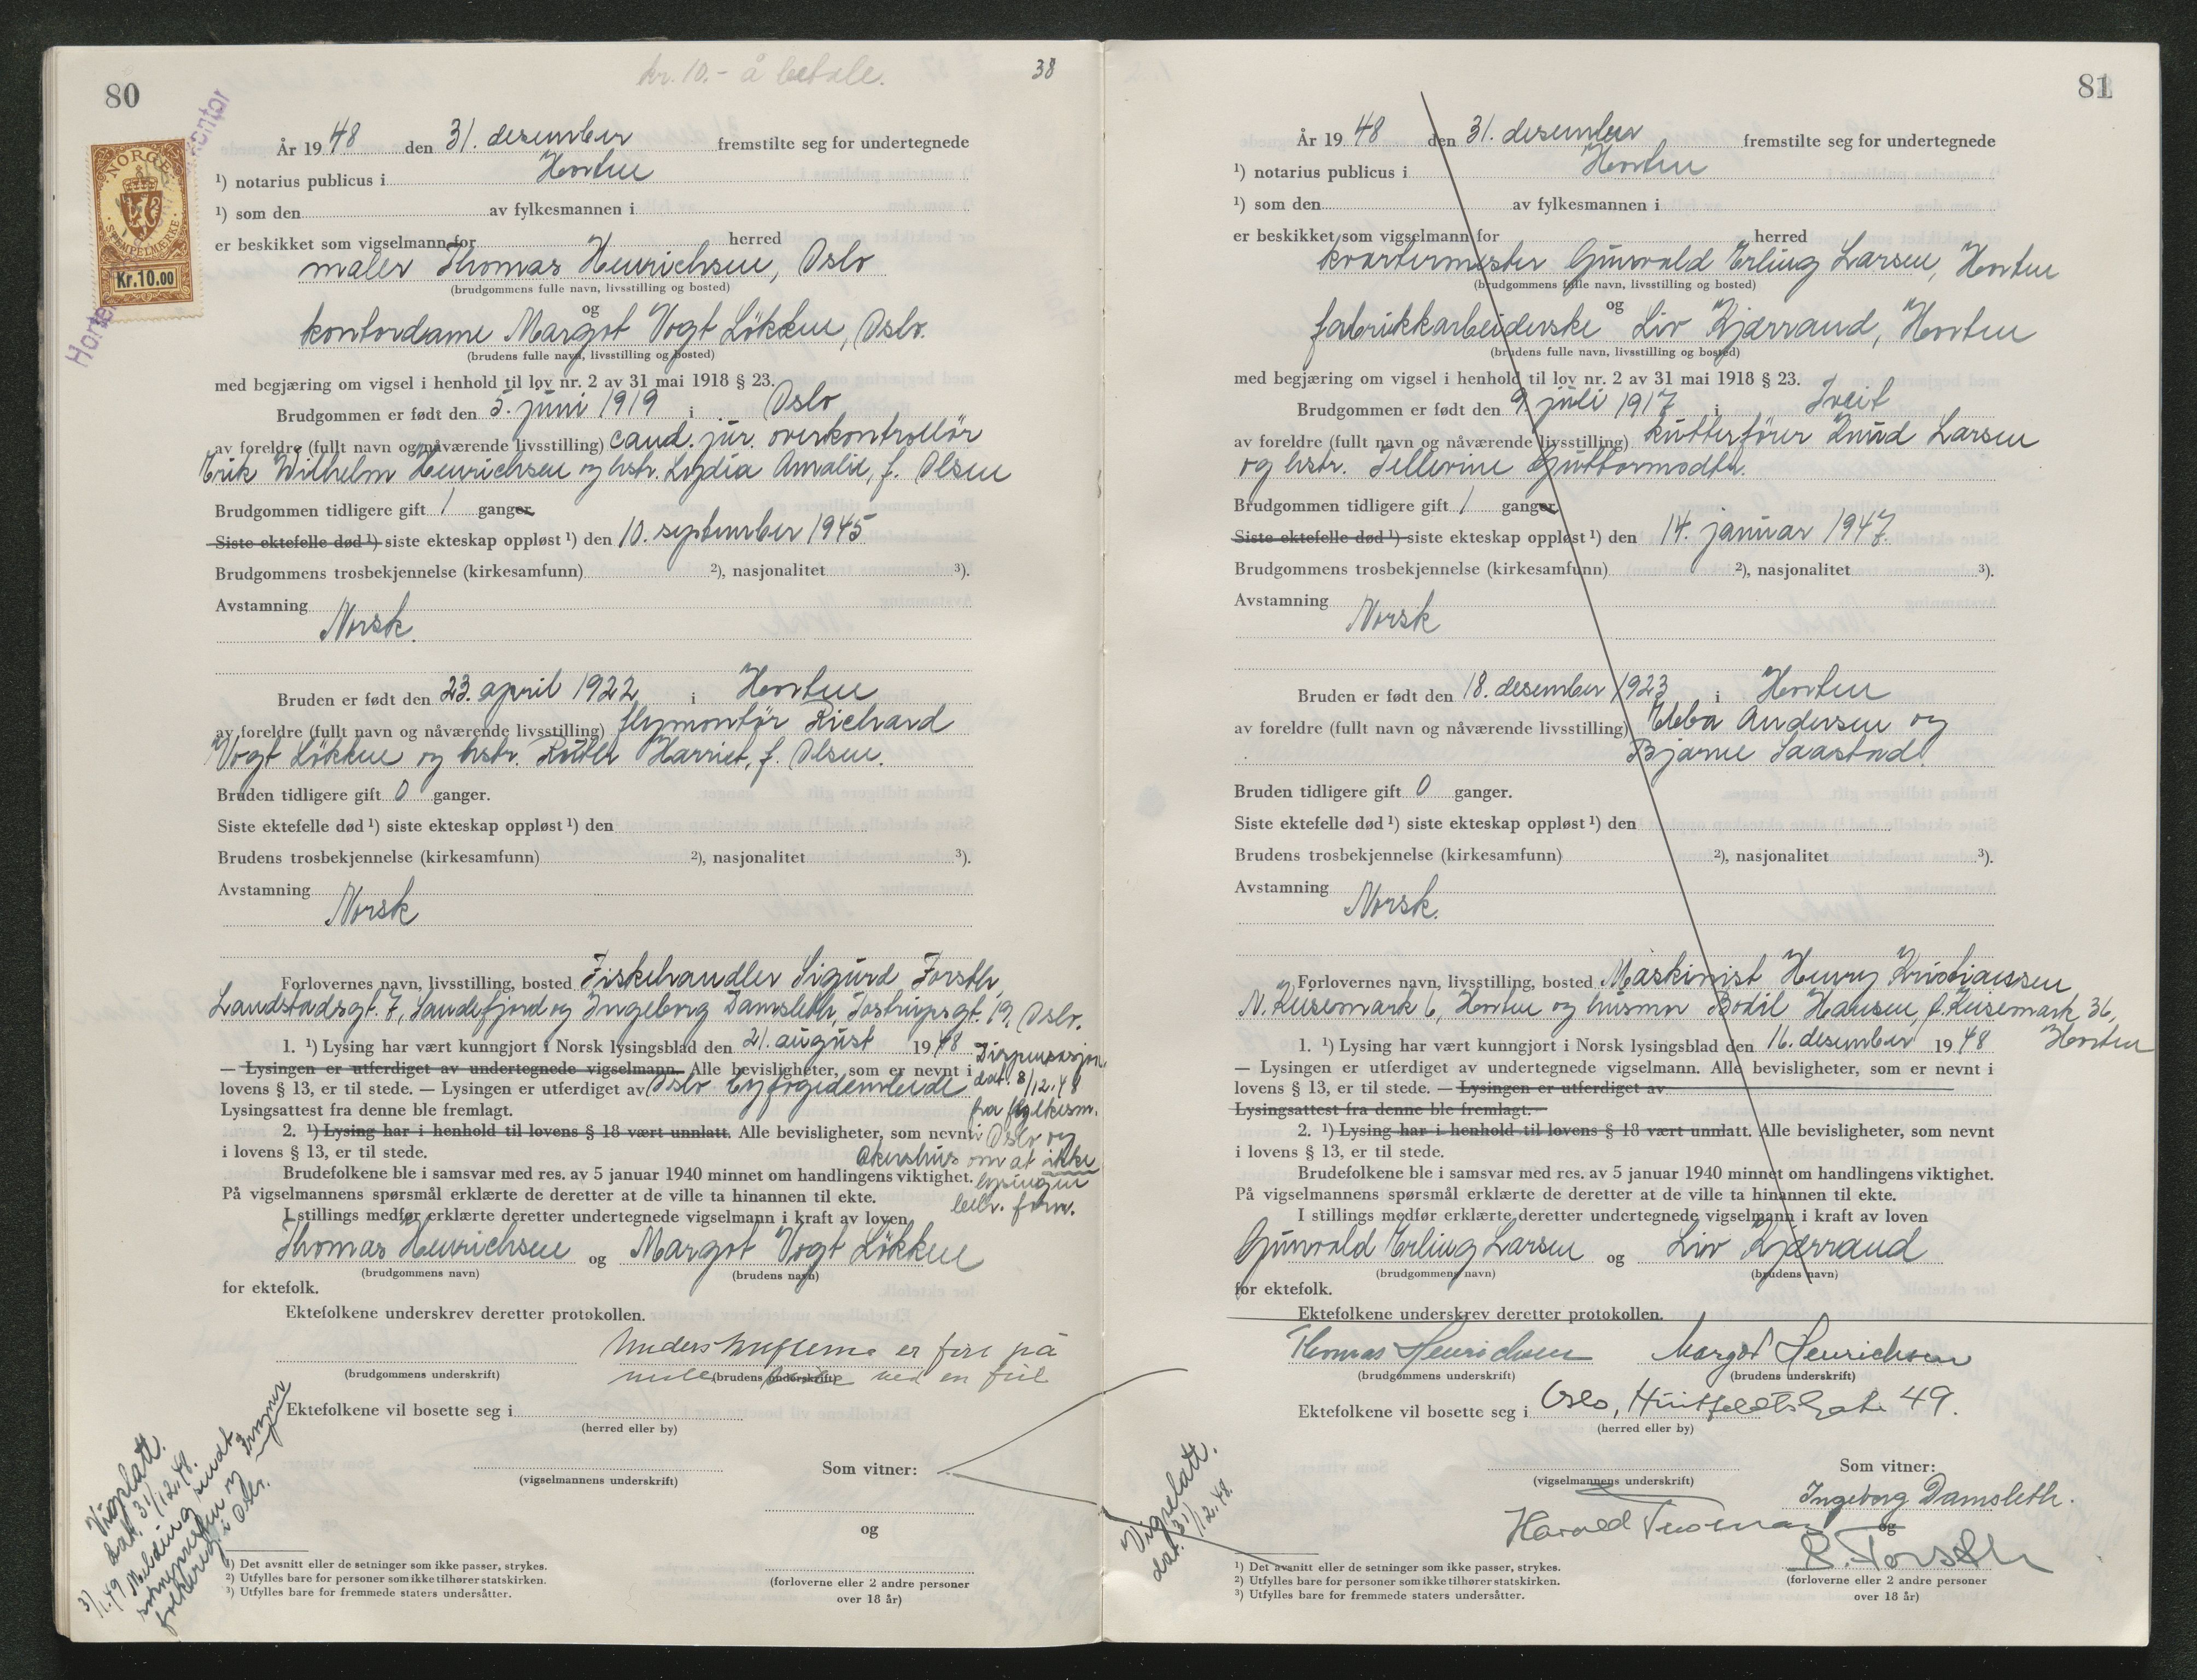 80
kr. 10.- å betale.
38
NORGE
STEMPELMERKE
Kr.10.00
År 1948 den 31. desember fremstilte seg for undertegnede
¹) notarius publicus i Horten
¹) som den av fylkesmannen i
er beskikket som vigselmann for herred
maler Thomas Henrichsen, Oslo
(brudgommens fulle navn, livsstilling og bosted)
og
kontordame Margot Vogt Løkken, Oslo.
(brudens fulle navn, livsstilling og bosted)
med begjæring om vigsel i henhold til lov nr. 2 av 31 mai 1918 § 23.
Brudgommen er født den 5. juni 1919 i Oslo
av foreldre (fullt navn og nåværende livsstilling) cand. jur. overkontrollør
Erik Wilhelm Henrichsen og hstr. Lydia Amalie, f. Olsen
Brudgommen tidligere gift 1 ganger
Siste ektefelle død ¹) siste ekteskap oppløst ¹) den 10. september 1945
Brudgommens trosbekjennelse (kirkesamfunn) ²), nasjonalitet ³).
Avstamning
Norsk.
Bruden er født den 23. april 1922 i Horten
av foreldre (fullt navn og nåværende livsstilling) flymontør Richard
Vogt Løkken og hstr. Ruth Harriet, f. Olsen.
Bruden tidligere gift 0 ganger.
Siste ektefelle død ¹) siste ekteskap oppløst ¹) den
Brudens trosbekjennelse (kirkesamfunn) ²), nasjonalitet ³).
Avstamning
Norsk
Forlovernes navn, livsstilling, bosted Fiskehandler Sigurd Forsth,
Landstadsgt. 7, Sandefjord og Ingeborg Damsleth, Tostrupsgt. 19, Oslo.
1. ¹) Lysing har vært kunngjort i Norsk lysingsblad den 21. august 1948
— Lysingen er utferdiget av undertegnede vigselmann. Alle bevisligheter, som er nevnt i
lovens § 13, er til stede. — Lysingen er utferdiget av Oslo byfogdembede
Lysingsattest fra denne ble fremlagt.
2. ¹) Lysing har i henhold til lovens § 18 vært unnlatt. Alle bevisligheter, som nevnt
i lovens § 13, er til stede.
Dispensasjon
dat. 8/12.48
fra fylkesm.
i Oslo og
Akershus om at ikke
lysingen
beh. forn.
Brudefolkene ble i samsvar med res. av 5 januar 1940 minnet om handlingens viktighet.
På vigselmannens spørsmål erklærte de deretter at de ville ta hinannen til ekte.
I stillings medfør erklærte deretter undertegnede vigselmann i kraft av loven
Thomas Henrichsen og Margot Vogt Løkken
(brudgommens navn) (brudens navn)
for ektefolk.
Ektefolkene underskrev deretter protokollen.
Underskriftene er ført på
neste side ved en feil
(brudgommens underskrift) (brudens underskrift)
Ektefolkene vil bosette seg i
(herred eller by)
(vigselmannens underskrift)
Som vitner:
og
(forloverne eller 2 andre personer
over 18 år)
Vigselatt.
dat. 31/12.48.
3/1.49 Melding sendt
soknepresten og Frogner
folkereg. i Oslo.
¹) Det avsnitt eller de setninger som ikke passer, strykes.
²) Utfylles bare for personer som ikke tilhører statskirken.
³) Utfylles bare for fremmede staters undersåtter.
81
År 1948 den 31. desember fremstilte seg for undertegnede
¹) notarius publicus i Horten
¹) som den av fylkesmannen i
er beskikket som vigselmann for herred
kvartermester Gunvald Erling Larsen, Horten
(brudgommens fulle navn, livsstilling og bosted)
og
fabrikkarbeiderske Liv Kjærrand, Horten
(brudens fulle navn, livsstilling og bosted)
med begjæring om vigsel i henhold til lov nr. 2 av 31 mai 1918 § 23.
Brudgommen er født den 9. juli 1917 i Tveit
av foreldre (fullt navn og nåværende livsstilling) kutterfører Knud Larsen
og hstr. Tellevine Guttormsdtr.
Brudgommen tidligere gift 1 ganger
Siste ektefelle død ¹) siste ekteskap oppløst ¹) den 14. januar 1947
Brudgommens trosbekjennelse (kirkesamfunn) ²), nasjonalitet ³).
Avstamning
Norsk
Bruden er født den 18. desember 1923 i Horten
av foreldre (fullt navn og nåværende livsstilling) Ebba Andersen og
Bjarne Saastad.
Bruden tidligere gift 0 ganger.
Siste ektefelle død ¹) siste ekteskap oppløst ¹) den
Brudens trosbekjennelse (kirkesamfunn) ²), nasjonalitet ³).
Avstamning
Norsk.
Forlovernes navn, livsstilling, bosted Maskinist Henry Kristianssen
N. Keisemark 6, Horten og husmor Bodil Hansen, f. Keisemark 36,
Horten
1. ¹) Lysing har vært kunngjort i Norsk lysingsblad den 16. desember 1948
— Lysingen er utferdiget av undertegnede vigselmann. Alle bevisligheter, som er nevnt i
lovens § 13, er til stede. — Lysingen er utferdiget av
Lysingsattest fra denne ble fremlagt.
2. ¹) Lysing har i henhold til lovens § 18 vært unnlatt. Alle bevisligheter, som nevnt
i lovens § 13, er til stede.
Brudefolkene ble i samsvar med res. av 5 januar 1940 minnet om handlingens viktighet.
På vigselmannens spørsmål erklærte de deretter at de ville ta hinannen til ekte.
I stillings medfør erklærte deretter undertegnede vigselmann i kraft av loven
Gunvald Erling Larsen og Liv Kjærrand
(brudgommens navn) (brudens navn)
for ektefolk.
Ektefolkene underskrev deretter protokollen.
Thomas Henrichsen Margot Henrichsen
(brudgommens underskrift) (brudens underskrift)
Ektefolkene vil bosette seg i Oslo, Huitfeldtsgate 49.
(herred eller by)
(vigselmannens underskrift)
Som vitner:
Ingeborg Damsleth.
Harald
og
S. Forsth
(forloverne eller 2 andre personer
over 18 år)
Vigselatt.
dat. 31/12.48.
¹) Det avsnitt eller de setninger som ikke passer, strykes.
²) Utfylles bare for personer som ikke tilhører statskirken.
³) Utfylles bare for fremmede staters undersåtter.